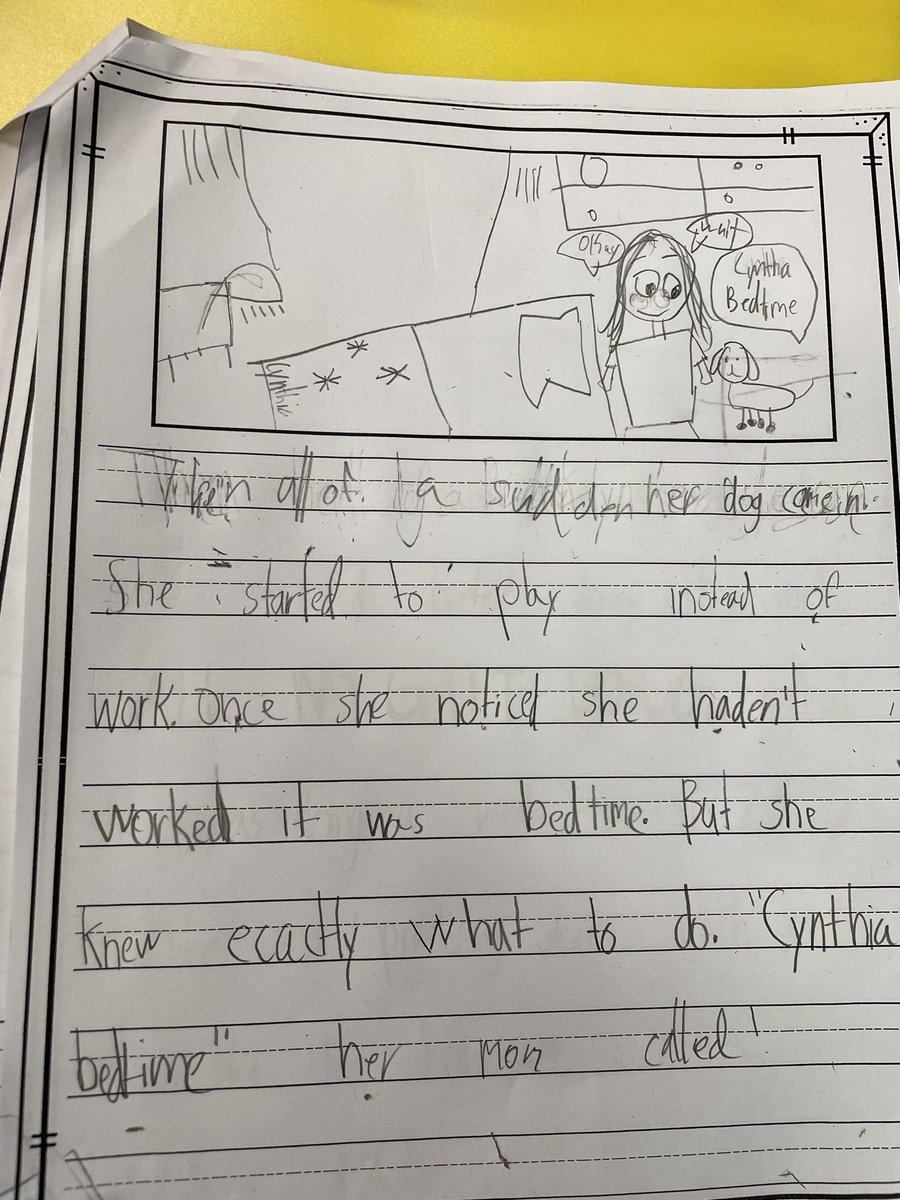 Okay
wait
Cynthia
Bedtime
Cynthia
When all of a sudden her dog came in.
She started to play instead of
work. Once she noticed she haden't
worked it was bedtime. But she
knew ecactly what to do. "Cynthia
bedtime" her mom called!